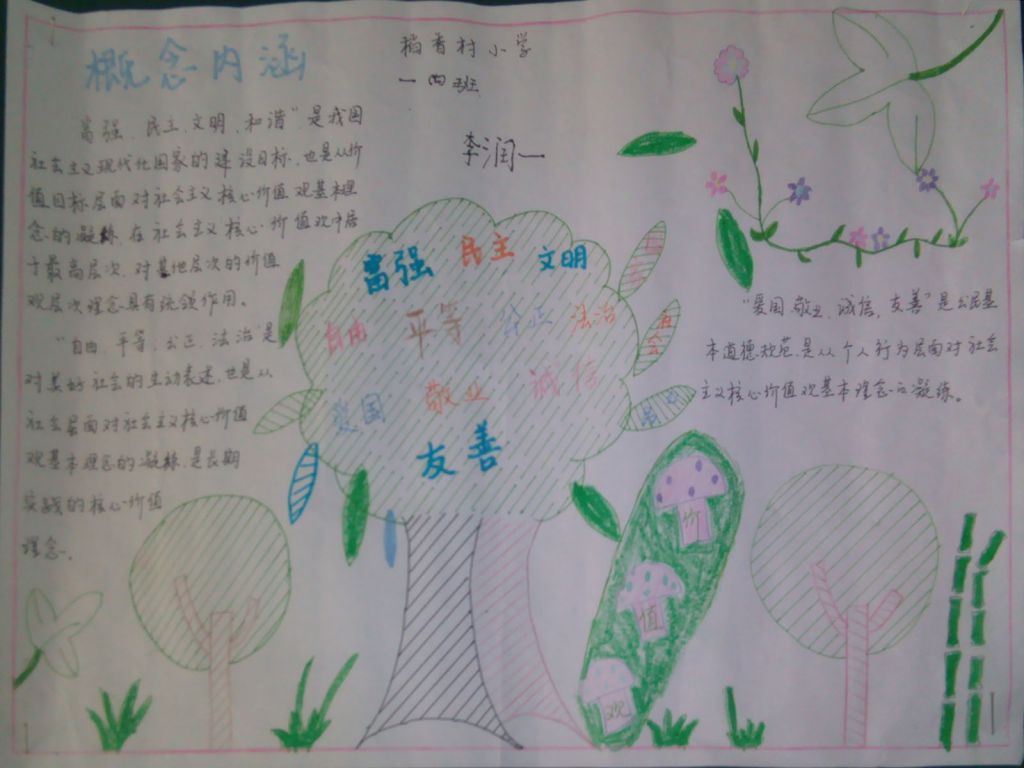 概念内涵
稻香村小学
一四班
李润一
富强、民主、文明、和谐"是我国
社会主义现代化国家的建设目标，也是从价
值目标层面对社会主义核心价值观基本理
念的凝练，在社会主义核心价值观中居
于最高层次，对其他层次的价值
观层次理念具有统领作用。
"自由、平等、公正、法治"是
对美好社会的生动表述，也是从
社会层面对社会主义核心价值
观基本理念的凝练，是长期
实践的核心价值
理念。
富强 民主 文明
自由 平等 公正 法治
爱国 敬业 诚信
友善
社会
价
值
观
"爱国、敬业、诚信、友善"是公民基
本道德规范，是从个人行为层面对社会
主义核心价值观基本理念的凝练。